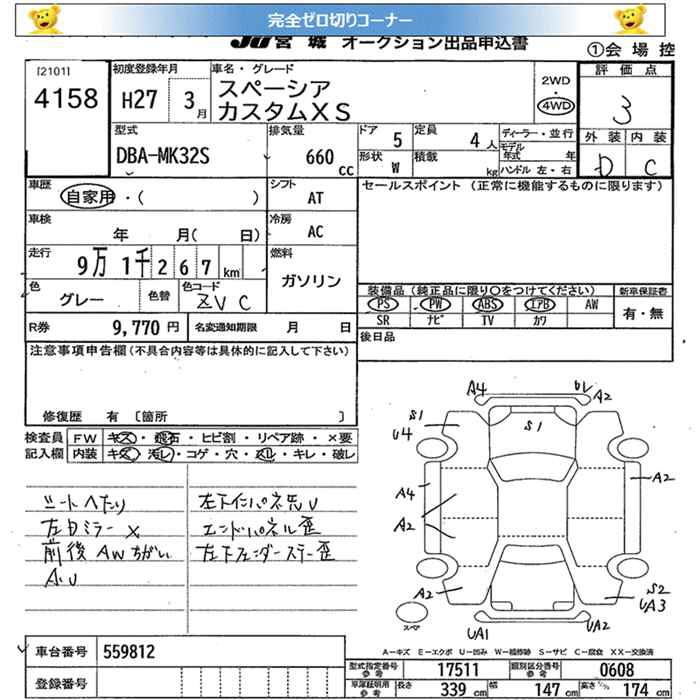 完全ゼロ切りコーナー
JU宮城 オークション出品申込書
①会場控
[2101]
4158
初度登録年月
H27 3月
車名・グレード
スペーシア
カスタムXS
2WD
4WD
評価点
3
外装 内装
D C
型式
DBA-MK32S
排気量
660 cc
ドア 5
定員 4人
形状 W
積載 kg
ディーラー・並行
モデル年式 年
ハンドル 左・右
車歴
自家用・( )
シフト
AT
セールスポイント(正常に機能するものに限ります)
車検
年 月( 日)
冷房
AC
走行
9万1千267km
燃料
ガソリン
色
グレー
色替
色コード
ZVC
装備品(純正品に限り○をつけてください)
新車保証書
PS PW ABS エアB AW
SR ナビ TV カワ
有・無
R券 9,770円
名変通知期限 月 日
後日品
注意事項申告欄(不具合内容等は具体的に記入して下さい)
修復歴 有 [箇所 ]
検査員記入欄
FW キズ・飛石・ヒビ割・リペア跡・×要
内装 キズ・汚レ・コゲ・穴・スレ・キレ・破レ
シートへたり
左Dミラー X
前後AWちがい
A.U
左下インパネ先U
エンドパネル歪
左下フェンダーステー歪
A4
A2
S1
U4
S1
A4
A2
A2
A2
S2
UA3
スペア
UA1
UA2
A-キズ E-エクボ U-凹み W-補修跡 S-サビ C-腐食 XX-交換済
車台番号 559812
登録番号
型式指定番号 参考 17511
類別区分番号 参考 0608
車庫証明用 参考 長さ 339cm 幅 147cm 高さ 174cm